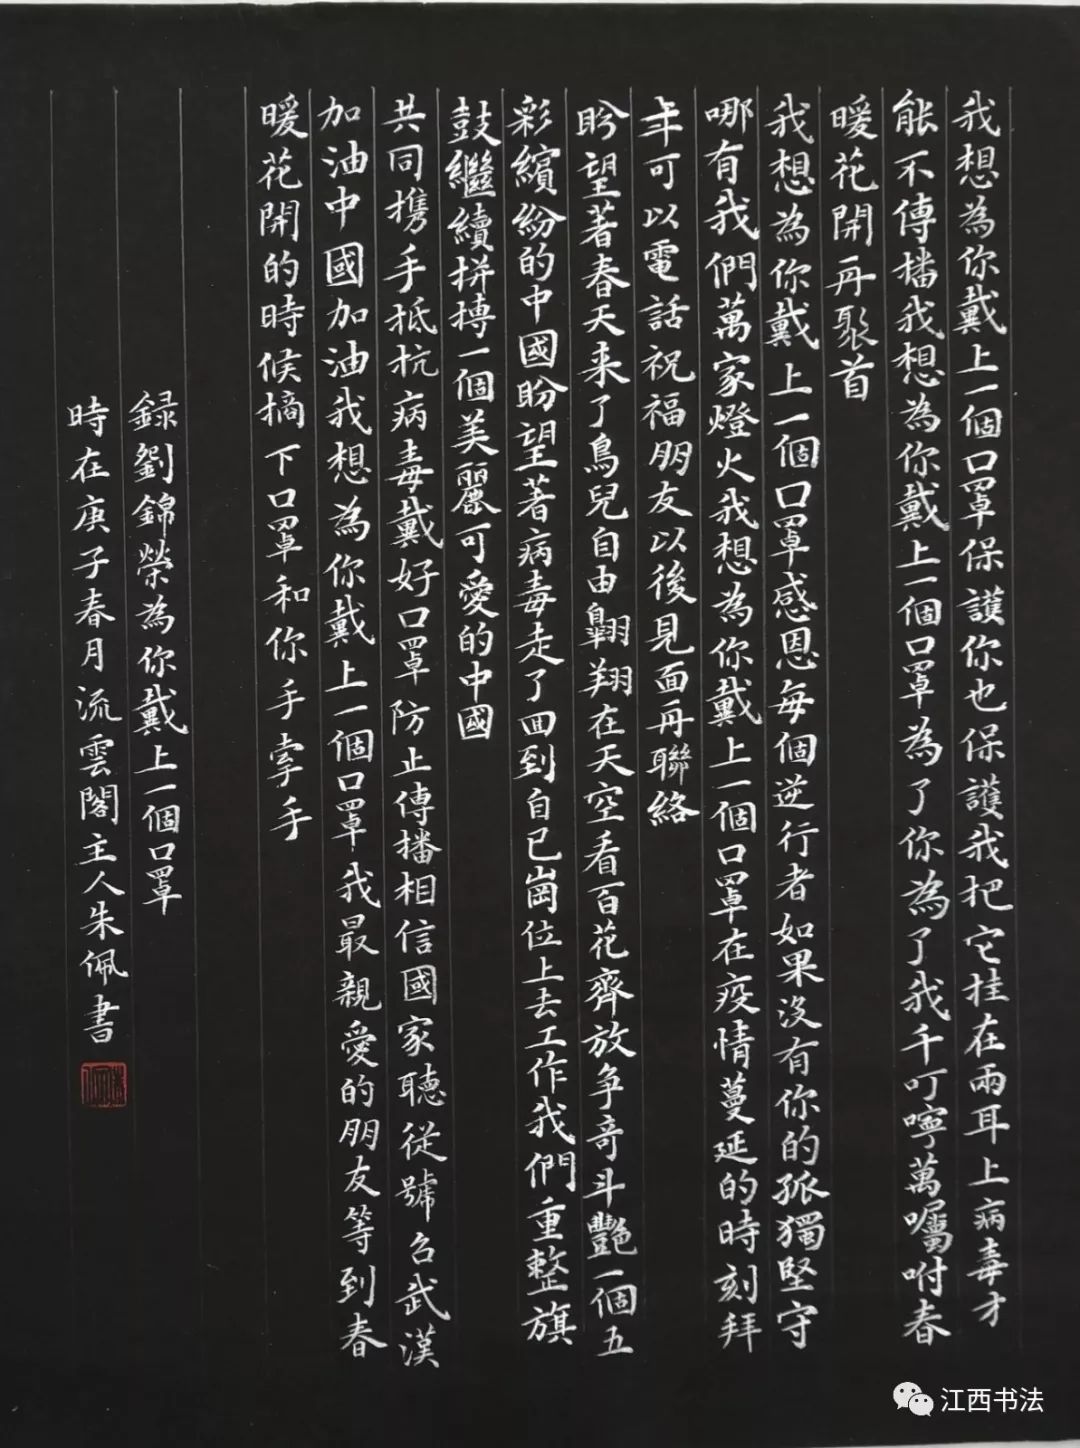 我想為你戴上一個口罩保護你也保護我把它挂在兩耳上病毒才
能不傳播我想為你戴上一個口罩為了你為了我千叮嚀萬囑咐春
暖花開再聚首
我想為你戴上一個口罩感恩每個逆行者如果沒有你的孤獨堅守
哪有我們萬家燈火我想為你戴上一個口罩在疫情蔓延的時刻拜
年可以電話祝福朋友以後見面再聯絡
盼望著春天来了鳥兒自由翱翔在天空看百花齊放争奇斗艷一個五
彩繽紛的中國盼望著病毒走了回到自己崗位上去工作我們重整旗
鼓繼續拼搏一個美麗可愛的中國
共同携手抵抗病毒戴好口罩防止傳播相信國家聽從號召武漢
加油中國加油我想為你戴上一個口罩我最親愛的朋友等到春
暖花開的時候摘下口罩和你手牵手
録劉錦榮為你戴上一個口罩
時在庚子春月流雲閣主人朱佩書
江西书法